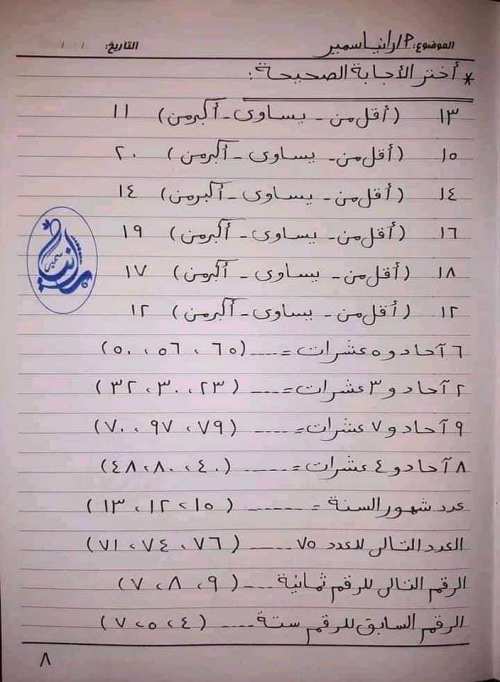 الموضوع: م/ رانيا سمير التاريخ: / /
* أختر الأجابة الصحيحة:
١٣ (أقل من - يساوى - أكبر من) ١١
١٥ (أقل من - يساوى - أكبر من) ٢٠
١٤ (أقل من - يساوى - أكبر من) ١٤
١٦ (أقل من - يساوى - أكبر من) ١٩
١٨ (أقل من - يساوى - أكبر من) ١٧
١٢ (أقل من - يساوى - أكبر من) ١٢
٦ آحاد و ٥ عشرات = .... (٦٥ ، ٥٦ ، ٥٠)
٢ آحاد و ٣ عشرات = .... (٢٣ ، ٣٠ ، ٣٢)
٩ آحاد و ٧ عشرات = .... (٧٩ ، ٩٧ ، ٧٠)
٨ آحاد و ٤ عشرات = .... (٤٠ ، ٨٠ ، ٤٨)
عدد شهور السنة = .... (١٥ ، ١٢ ، ١٣)
العدد التالى للعدد ٧٥ .... (٧٦ ، ٧٤ ، ٧١)
الرقم التالى للرقم ثمانية .... (٩ ، ٨ ، ٧)
الرقم السابق للرقم ستة .... (٤ ، ٥ ، ٧)
٨